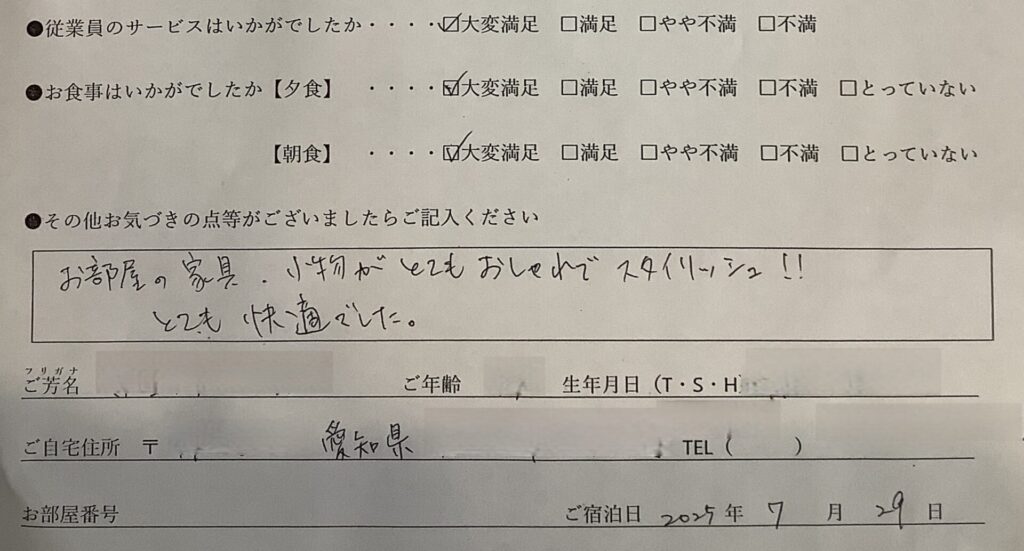 ●従業員のサービスはいかがでしたか・・・・☑大変満足 □満足 □やや不満 □不満
●お食事はいかがでしたか【夕食】 ・・・・☑大変満足 □満足 □やや不満 □不満 □とっていない
【朝食】 ・・・・☑大変満足 □満足 □やや不満 □不満 □とっていない
●その他お気づきの点等がございましたらご記入ください
お部屋の家具.小物がとてもおしゃれでスタイリッシュ!!
とても快適でした。
フリガナ
ご芳名 ご年齢 生年月日(T・S・H)
ご自宅住所 〒 愛知県 TEL( )
お部屋番号 ご宿泊日 2025年 7 月 29 日